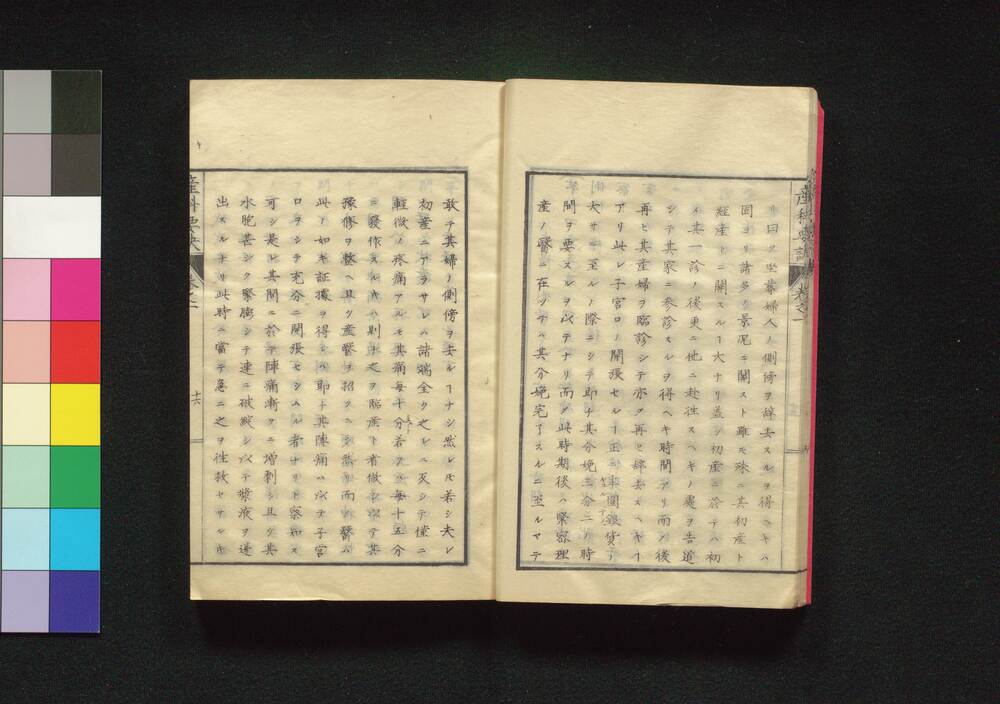 産科要訣 巻之一
固ヨリ諸多ノ景況ニ關スト雖モ殊ニ其初産ト
經産トニ關スルヿ大ナリ蓋シ初産ニ於テハ初
其一診ノ後更ニ他ニ赴往スヘキノ處ヲ告道
シテ其家ニ参診スルヲ得ヘキ時間アリ而シ後
再ヒ其産婦ヲ臨診シテ亦タ再ヒ辞去スヘキヿ
アリ此レ子宮口ノ開張セルヿ正ニ
大サニ至ルノ際ニシテ即チ其分娩三分ニノ時
間ヲ要スルヲ以テナリ而シテ此時期後ハ緊密理
産ノ醫ニ在ツテハ其分娩完了スルニ至ルマテ
敢テ其婦ノ側傍ヲ去ルヿナシ然レ𪜈若シ夫レ
初産ニアラサレハ諸端全ク之レニ反シテ僅ニ
輕微ノ疼痛アルモ其痛毎十分若クハ毎十五分
ニ發作スルキハ則チ之ヲ臨床ト看做シ以テ其
豫修ヲ整ヘ且ツ産醫ヲ招クヘシ然リ而シ醫ハ
此ノ如キ証據ヲ得レハ即チ其陣痛ハ以テ子宮
口ヲシテ充分ニ開張セシムル者ナリト察知ス
可シ是レ其間ニ於テ陣痛漸クニ増劇シ且ツ其
水胞甚シク緊膨シテ速ニ破綻シ以テ漿液ヲ迸
出スルナリ此時ニ當テ急ニ之ヲ往救セサルキ
産科要訣
十六